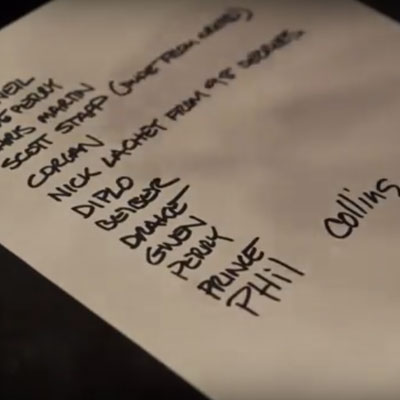 NEIL
PERRY
MARTIN
SCOTT STAPP (DUDE FROM CREED)
CORGAN
NICK LACHEY FROM 98 DEGREES
DIPLO
BEIBER
DRAKE
GWEN
PERRY
PRINCE
PHil Collins